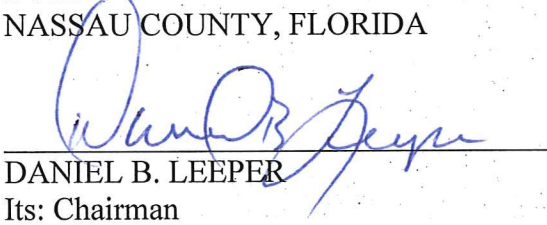 NASSAU COUNTY, FLORIDA
Daniel B Leeper
DANIEL B. LEEPER
Its: Chairman